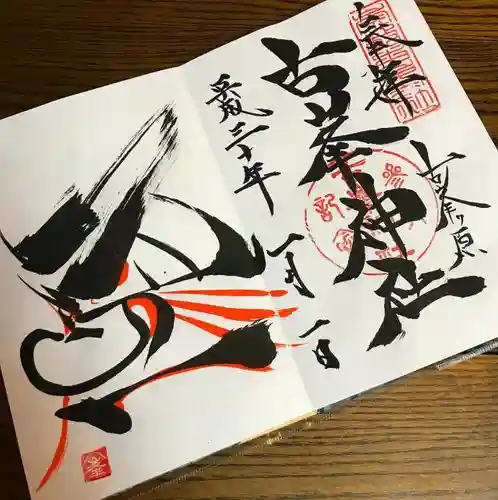 奉拝
古峯ヶ原
古峯神社
平成三十年
一月一日